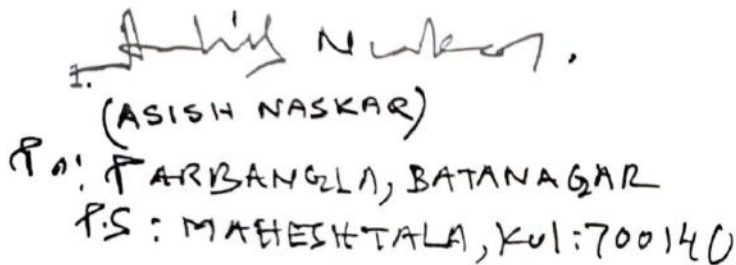 1. Ashish Naskar.
(ASISH NASKAR)
PO: PARBANGLA, BATANAGAR
P.S: MAHESHTALA, Kol:700140